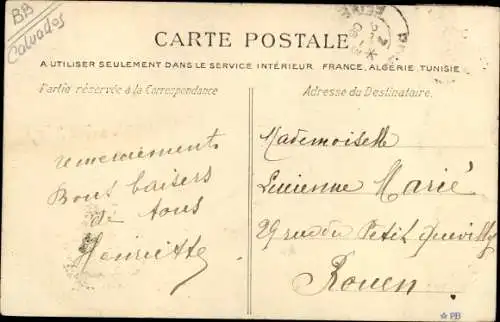 BB
Calvados
CARTE POSTALE
A UTILISER SEULEMENT DANS LE SERVICE INTÉRIEUR FRANCE, ALGÉRIE, TUNISIE
Partie réservée à la Correspondance
Adresse du Destinataire.
remerciements
Bons baisers
de tous
Henriette
Mademoiselle
Lucienne Marié
29 rue du Petit Quevilly
Rouen
☆ PB